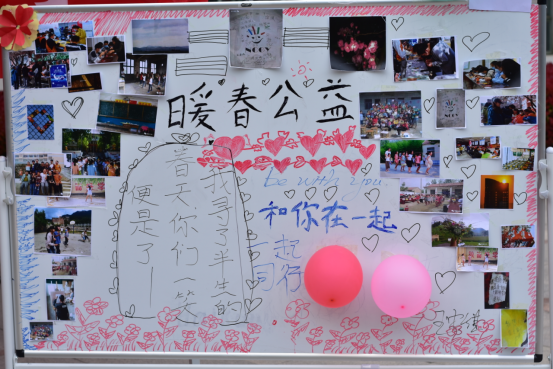 暖春公益
be with you.
和你在一起
一起
同行
我寻了半生的
春天你们一笑
便是了——